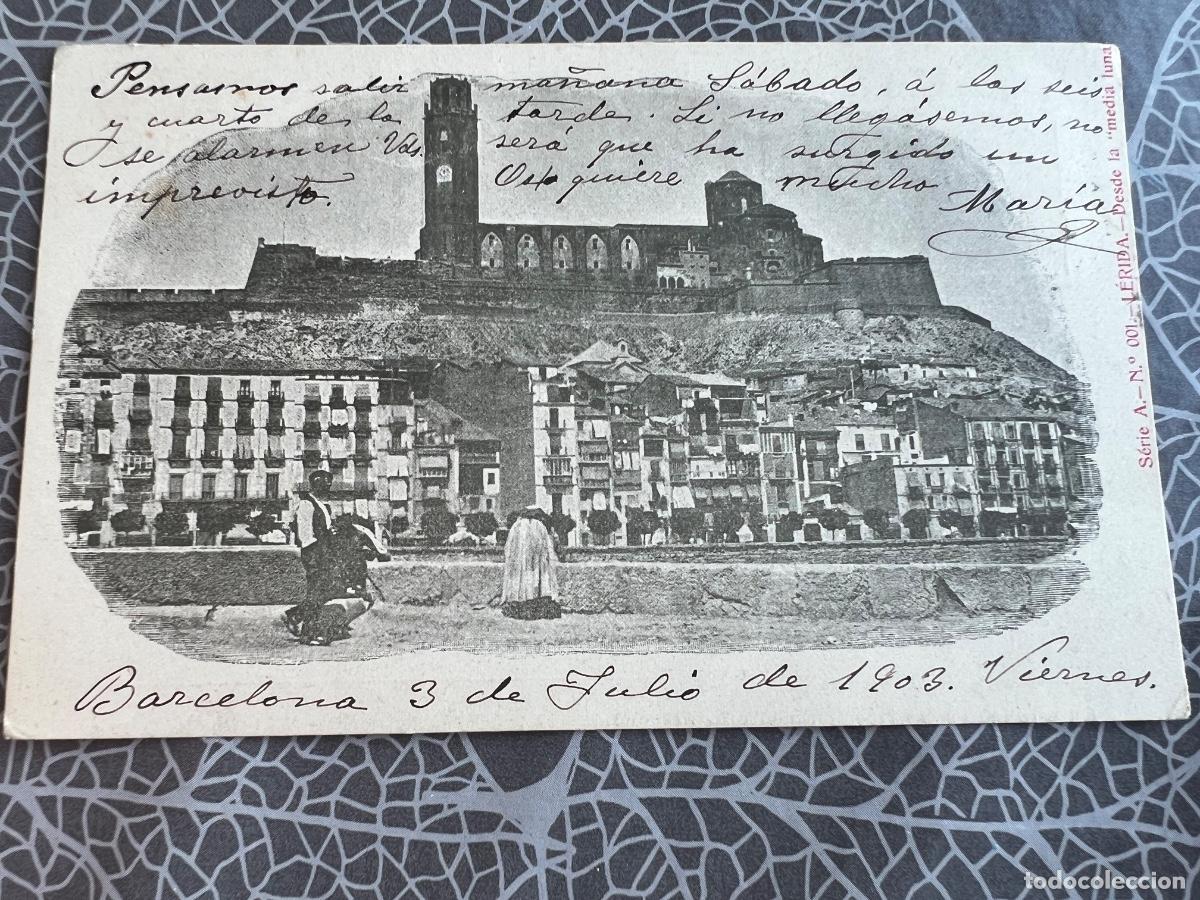 Pensamos salir mañana Sábado, á las seis
y cuarto de la tarde. Si no llegásemos, no
se alarmen Vds. será que ha surgido un
imprevisto. Os quiere mucho
María
Série A.–N.º 001.–LÉRIDA.–Desde la "media luna
Barcelona 3 de Julio de 1903. Viernes.
todocoleccion